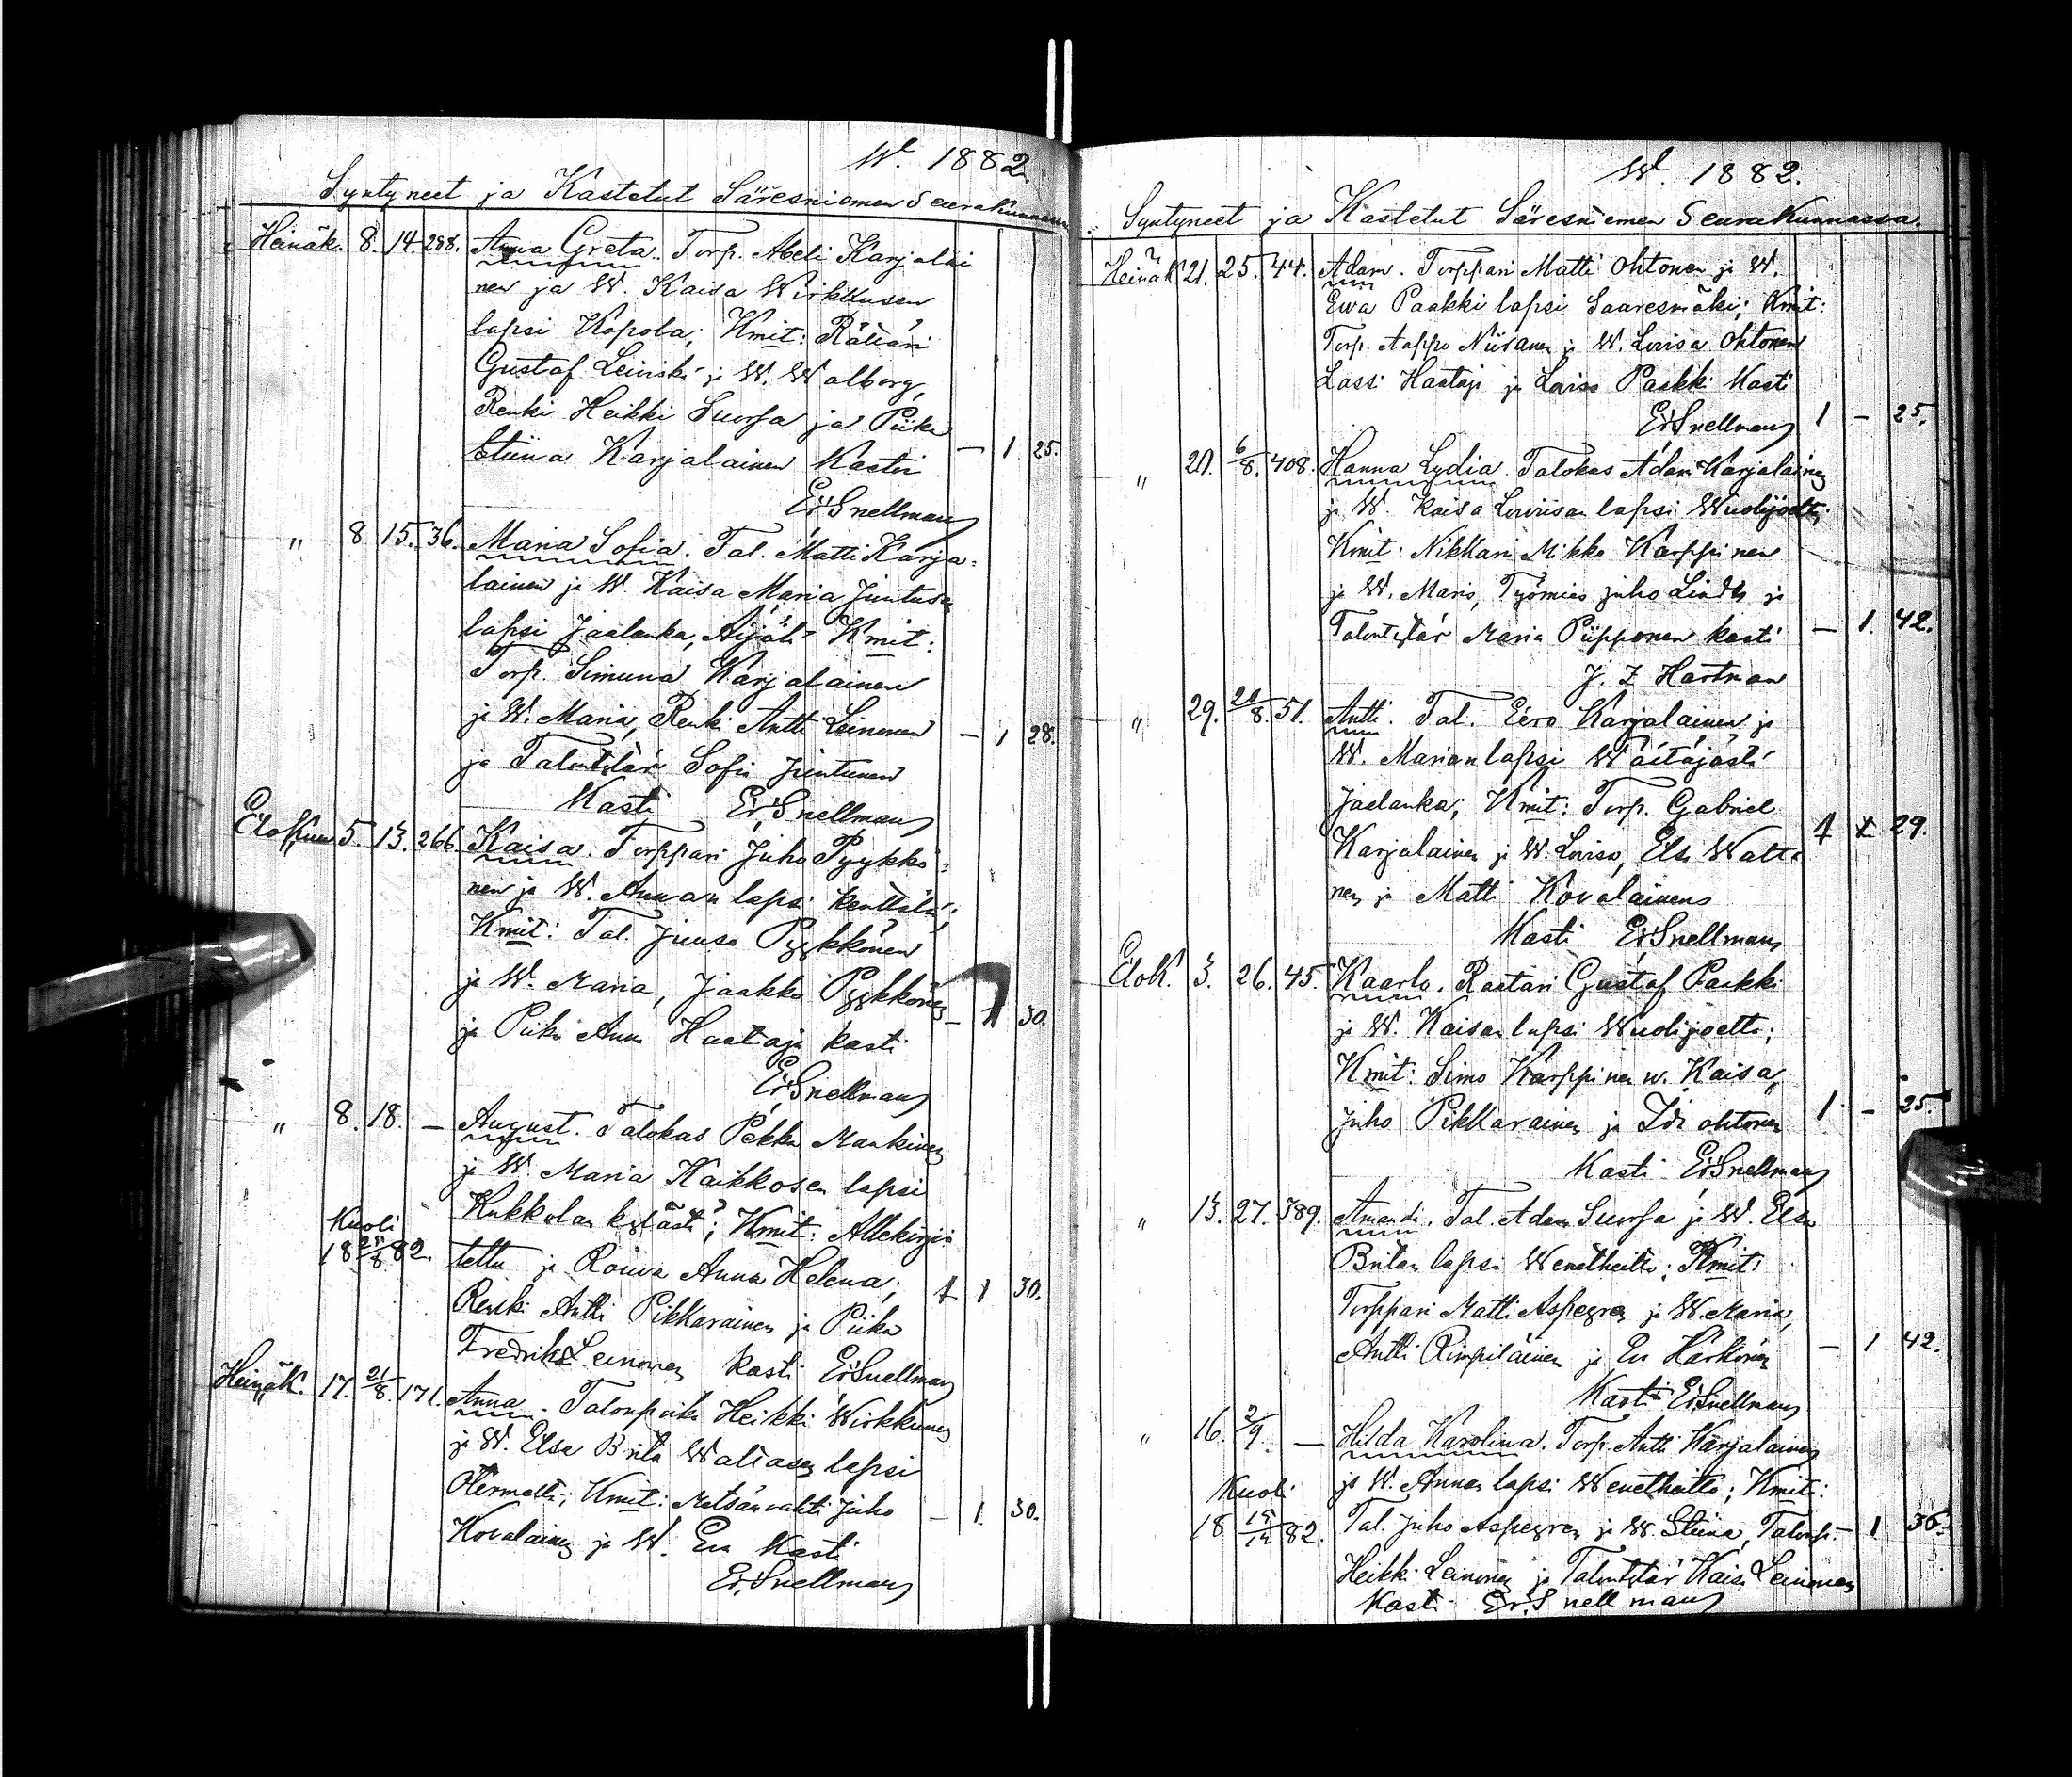 Wl. 1882.
Syntyneet ja Kastetut Säresniemen Seurakunnassa
Heinäk. 8. 14. 288. Anna Greta. Torp. Abeli Karjalai
nen ja W. Kaisa Wirkkusen
lapsi Kopola; Kmit: Räätäri
Gustaf Leiviskä ja W. Walborg,
Renki Heikki Suorsa ja Piika
Stiina Karjalainen Kasti — 1. 25.
Er. Snellman
" 8 15. 36. Maria Sofia. Tal. Matti Karja-
lainen ja W. Kaisa Maria Juntusen
lapsi Jaalanka, Äijälä Kmit:
Torp. Simuna Karjalainen
ja W. Maria, Renki Antti Leinonen — 1 28.
ja Talontytär Sofia Juntunen
Kasti Er. Snellman
Elokuu 5. 13. 266. Kaisa. Torppari Juho Pyykkö-
nen ja W. Annan lapsi Kenttälä;
Kmit: Tal. Juuso Pyykkönen
ja W. Maria, Jaakko Pyykkönen — 1 30.
ja Piika Anna Haataja kasti
Er. Snellman
" 8. 18. — August. Talokas Pekka Mankinen
ja W. Maria Kaikkosen lapsi
Kukkolan kylästä; Kmit: Allekirjoi-
Kuoli
18 25/8 82. tettu ja Rouva Anna Helena; 1 1 30.
Renki Antti Pikkarainen ja Piika
Fredrika Leinonen Kasti Er. Snellman
Heinäk. 17. 21/8. 171. Anna. Talonpoika Heikki Wirkkunen
ja W. Elsa Brita Waliasen lapsi
Otermalta; Kmit: Metsänvahti Juho — 1. 30.
Kovalainen ja W. Eva Kasti
Er. Snellman
Wl. 1882.
Syntyneet ja Kastetut Säresniemen Seurakunnassa.
Heinäk. 21. 25. 44. Adam. Torppari Matti Ohtonen ja W.
Ewa Paakki lapsi Saaresmäki; Kmit:
Torp. Aappo Niiranen ja W. Lovisa Ohtonen
Lassi Haataja ja Lovisa Paakki Kasti
Er. Snellman 1 — 25.
" 21. 6/8. 408. Hanna Lydia. Talokas Adam Karjalainen
ja W. Kaisa Loviisan lapsi Wuolijoelta;
Kmit: Nikkari Mikko Karppinen
ja W. Maria, Työmies Juho Lindh ja
Talontytär Maria Piipponen kasti — 1. 42.
J. Z Hartman
" 29. 20/8. 51. Antti. Tal. Eero Karjalainen ja
W. Marian lapsi Wäätäjästä
Jaalanka; Kmit: Torp. Gabriel
Karjalainen ja W. Lovisa, Elsa Waltt 1 1 29.
nen ja Matti Kovalainens
Kasti Er. Snellman
Elok. 3. 26. 45. Kaarlo. Räätäri Gustaf Paakki
ja W. Kaisan lapsi Wuolijoelta;
Kmit: Simo Karppinen w. Kaisa,
Juho Pikkarainen ja Ida Ohtonen 1 — 25.
Kasti Er. Snellman
" 13. 27. 389. Amanda. Tal. Adam Suorsa ja W. Elsa
Britan lapsi Wenetheitto; Kmit:
Torppari Matti Aspegren ja W. Maria,
Antti Rimpiläinen ja Eva Härkönen — 1 42.
Kasti Er. Snellman
" 16. 2/9. — Hilda Karolina. Torp. Antti Karjalainen
Kuoli ja W. Annan lapsi Wenetheitto; Kmit:
18 15/12 82. Tal. Juho Aspegren ja W. Stiina, Talonp. — 1 36.
Heikki Leinonen ja Talontytär Kaisa Leinonen
Kasti Er. Snellman